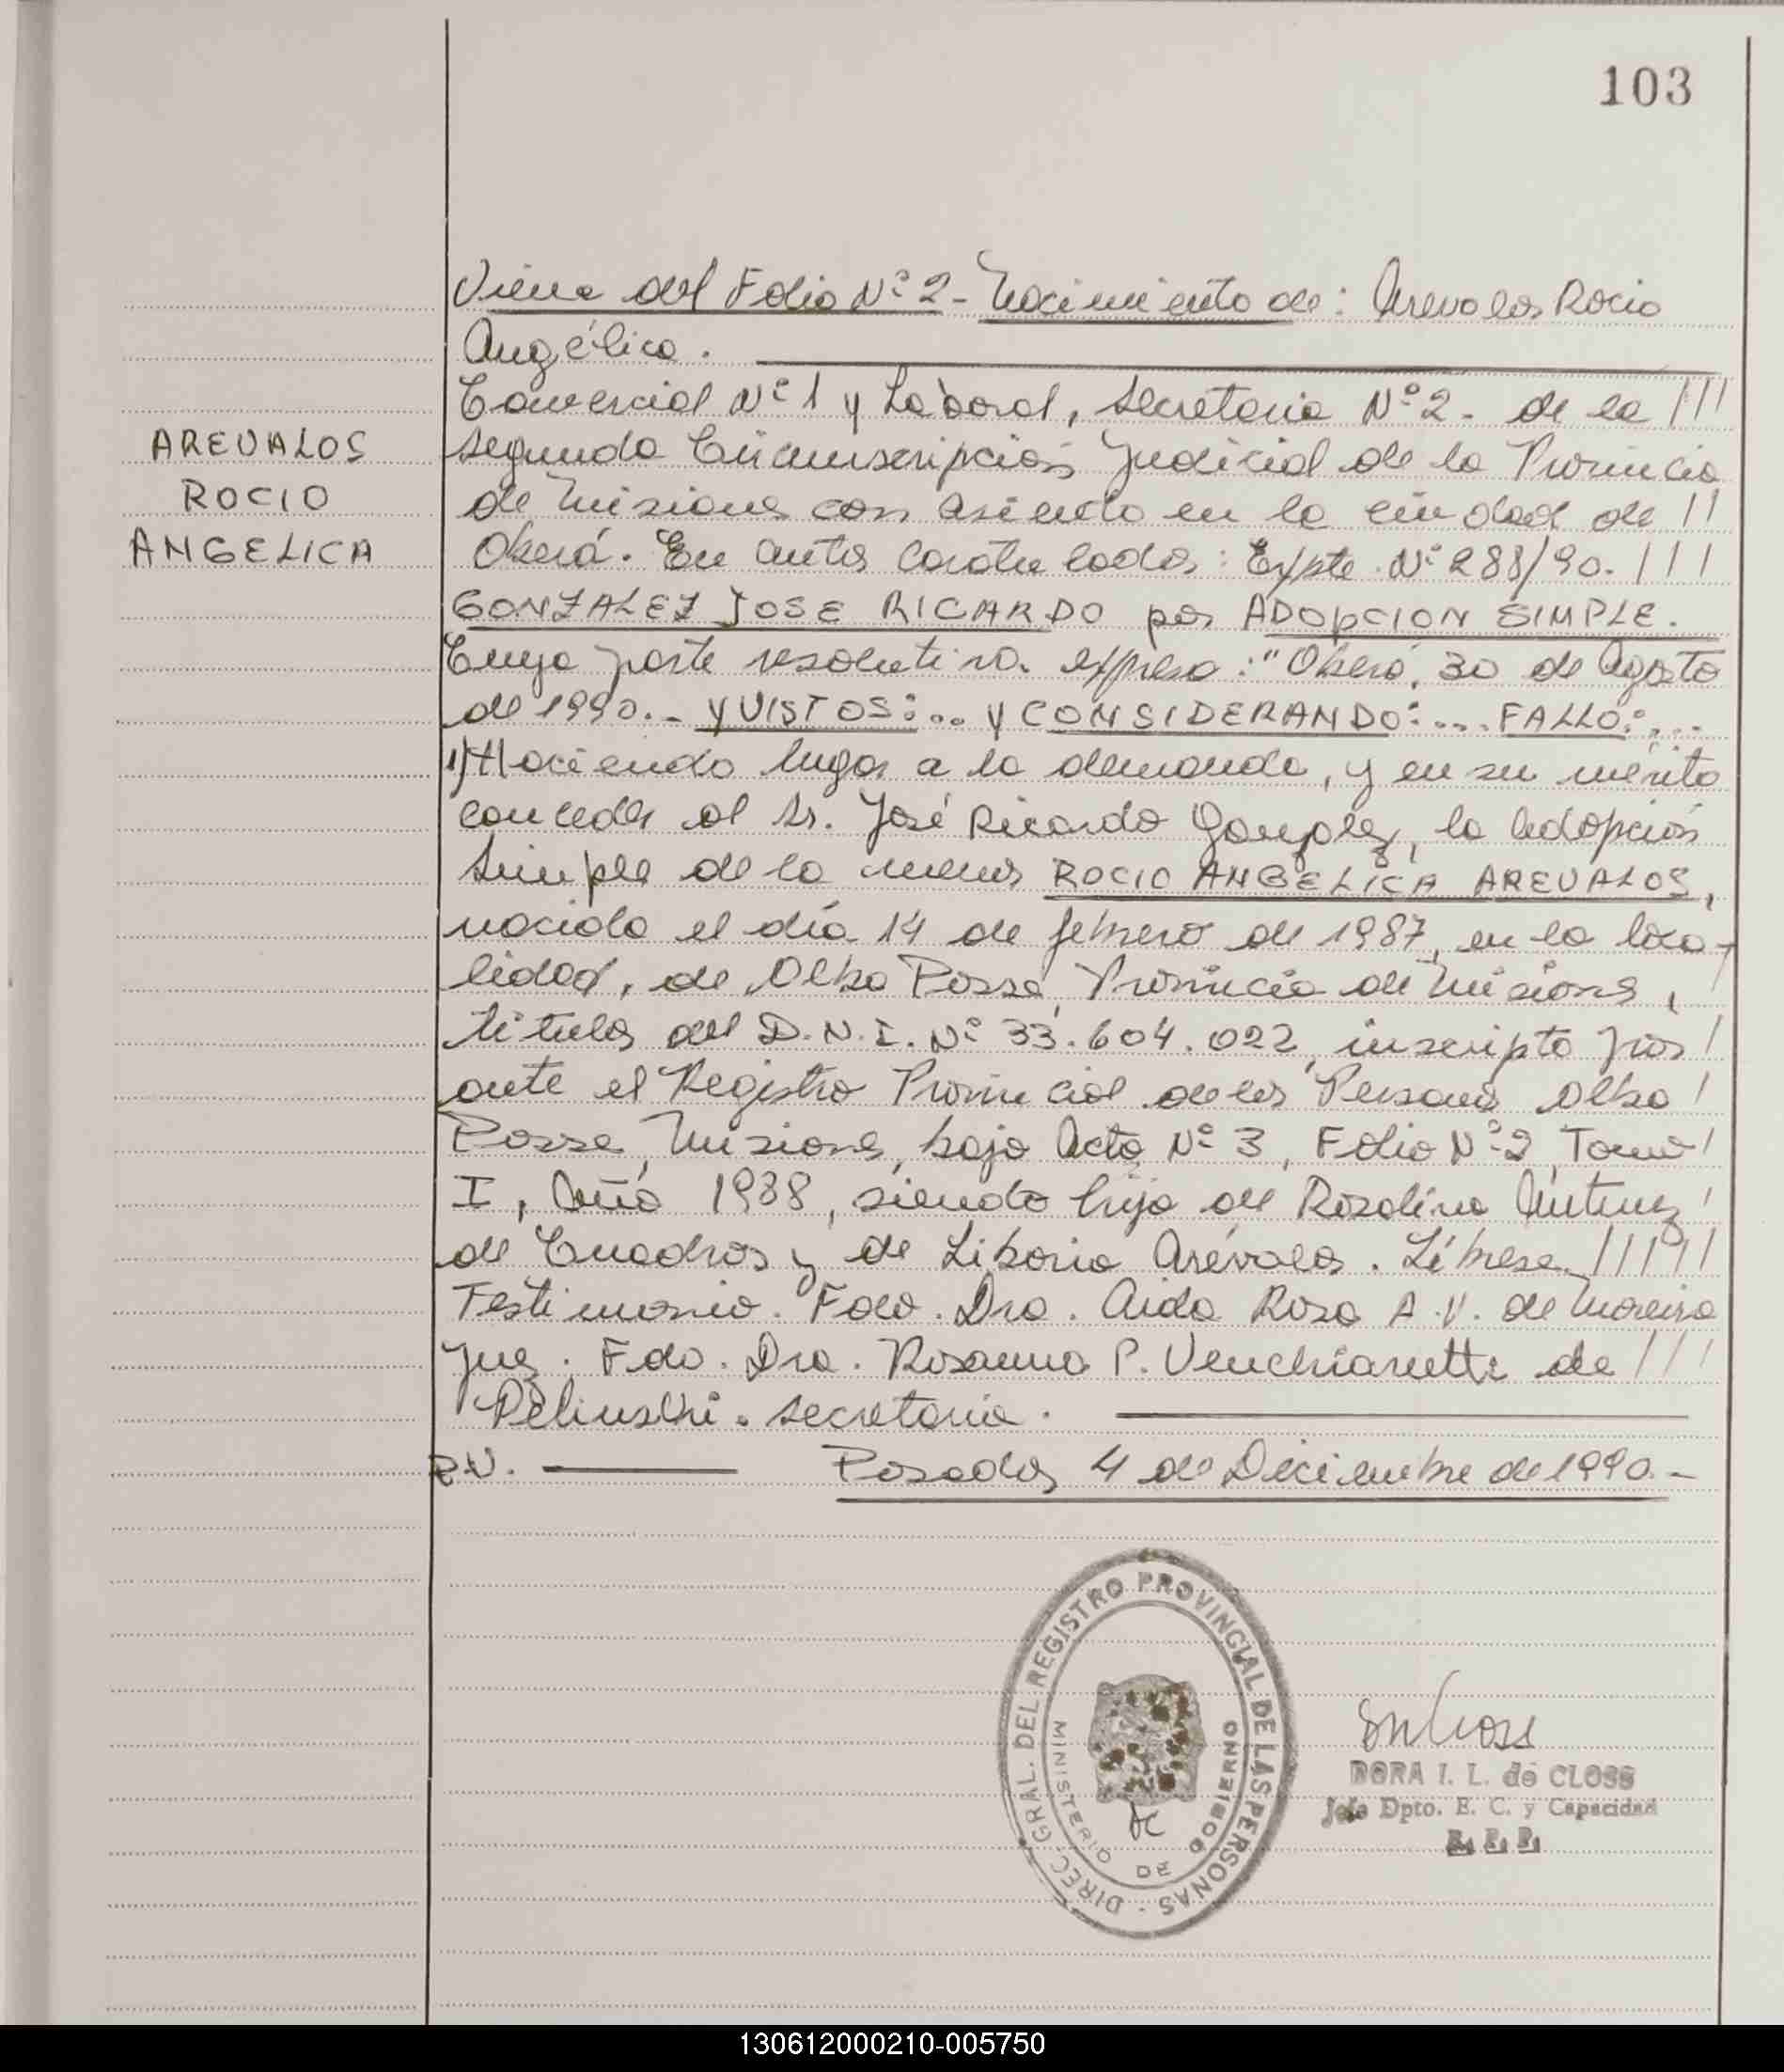 103
Viene del Folio N° 2 - Nacimiento de: Arevalos Rocio
Angélica.
Comercial N° 1 y Laboral, Secretaria N° 2 - de la ///
AREVALOS
segunda Circunscripción Judicial de la Provincia
ROCIO
de Misiones con asiento en la ciudad de //
ANGELICA
Oberá. En autos caratulados: Expte. N° 288/90. ///
GONZALEZ JOSE RICARDO por ADOPCION SIMPLE.
Cuya parte resolutiva expresa: "Oberá, 30 de Agosto
de 1990.- Y VISTOS:... Y CONSIDERANDO:... FALLO:...
1) Haciendo lugar a la demanda, y en su mérito
conceder al Sr. José Ricardo Gonzalez, la adopción
simple de la menor ROCIO ANGELICA AREVALOS,
nacida el día 14 de febrero de 1987, en la loca-
lidad, de Alba Posse, Provincia de Misiones, /
titular del D.N.I. N° 33.604.022, inscripta por /
ante el Registro Provincial de las Personas Alba /
Posse, Misiones, bajo Acta N° 3, Folio N° 2, Tomo /
I, Año 1988, siendo hija de Rosalina Antunez /
de Cuadros y de Liborio Arévalos. Líbrese /////
Testimonio. Fdo. Dra. Aida Rosa A.V. de Moreira
Juez. Fdo. Dra. Rosanna P. Venchiarutti de ///
Pelinski. secretaria.
P.V. Posadas 4 de Diciembre de 1990.-
DIREC. GRAL. DEL REGISTRO PROVINCIAL DE LAS PERSONAS
MINISTERIO DE GOBIERNO
DORA I. L. de CLOSS
Jefe Dpto. E. C. y Capacidad
R. P. P.
130612000210-005750